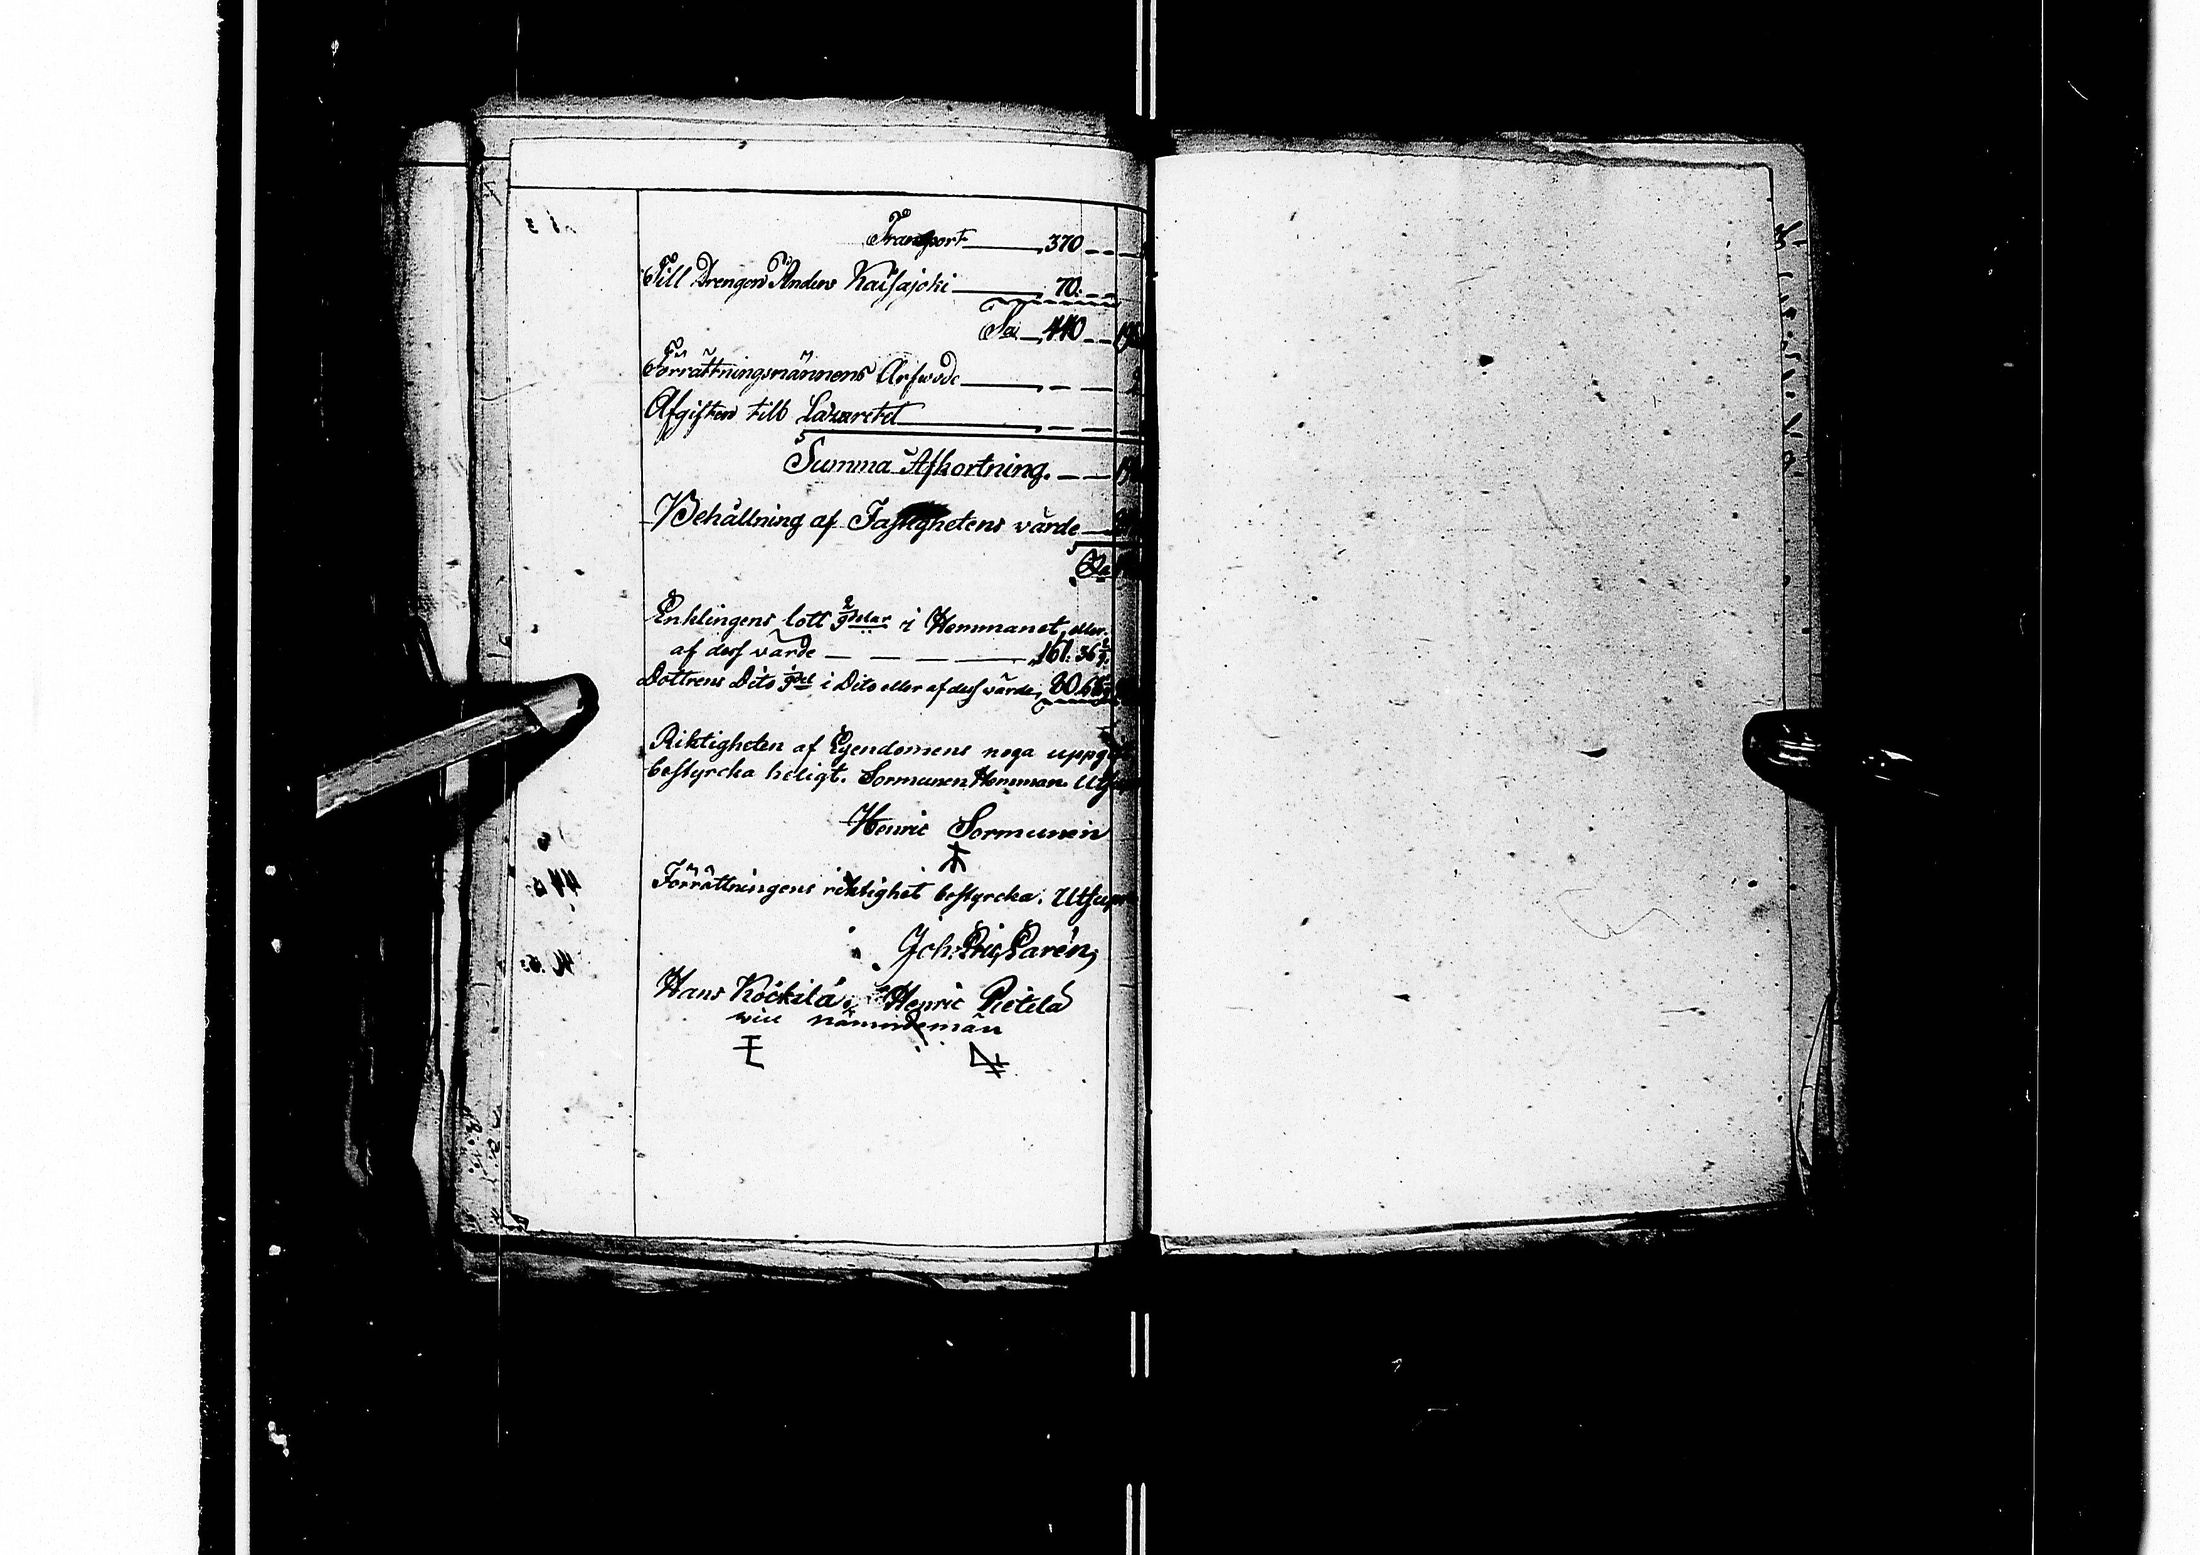 Transport 370
Till Drengen Anders Kaisajoki 70.
S:a 440
Förrättningsmännens Arfwode
Afgiften till Lazarettet
Summa Afkortning.
Behållning af Fastighetens värde
Enklingens lott 2/9 delar i Hemmanet, eller
af dess värde 161. 36
Dottrens Dito 1/9 del i Dito eller af dess värde,
Riktigheten af Egendomens noga
bestyrcka heligt. Sormunen Hemman.
Henric Sormunen
Förrättningens riktighet bestyrcka. Utsupra
Joh: Eric Parén,
Hans Köckilä, Henric Pietilä
nämndemän